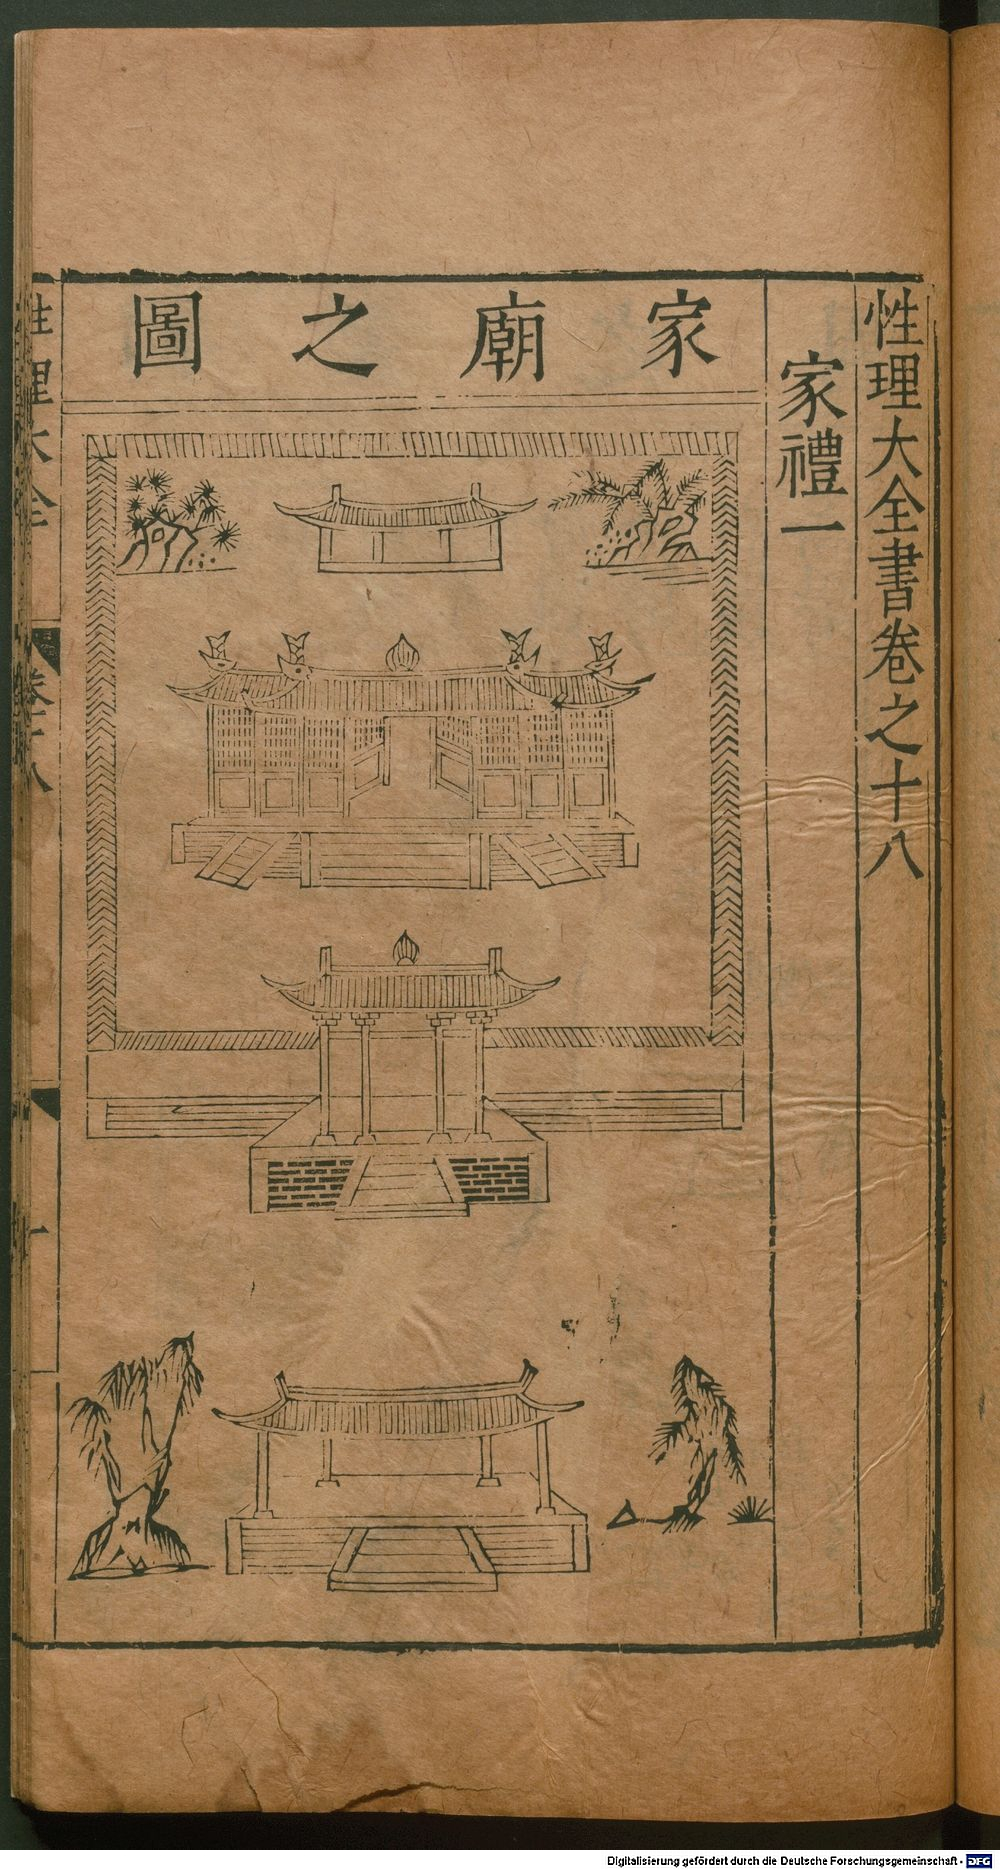 性理大全書卷之十八
家禮一
家廟之圖
性理大全
卷十八
一
Digitalisierung gefördert durch die Deutsche Forschungsgemeinschaft - DFG